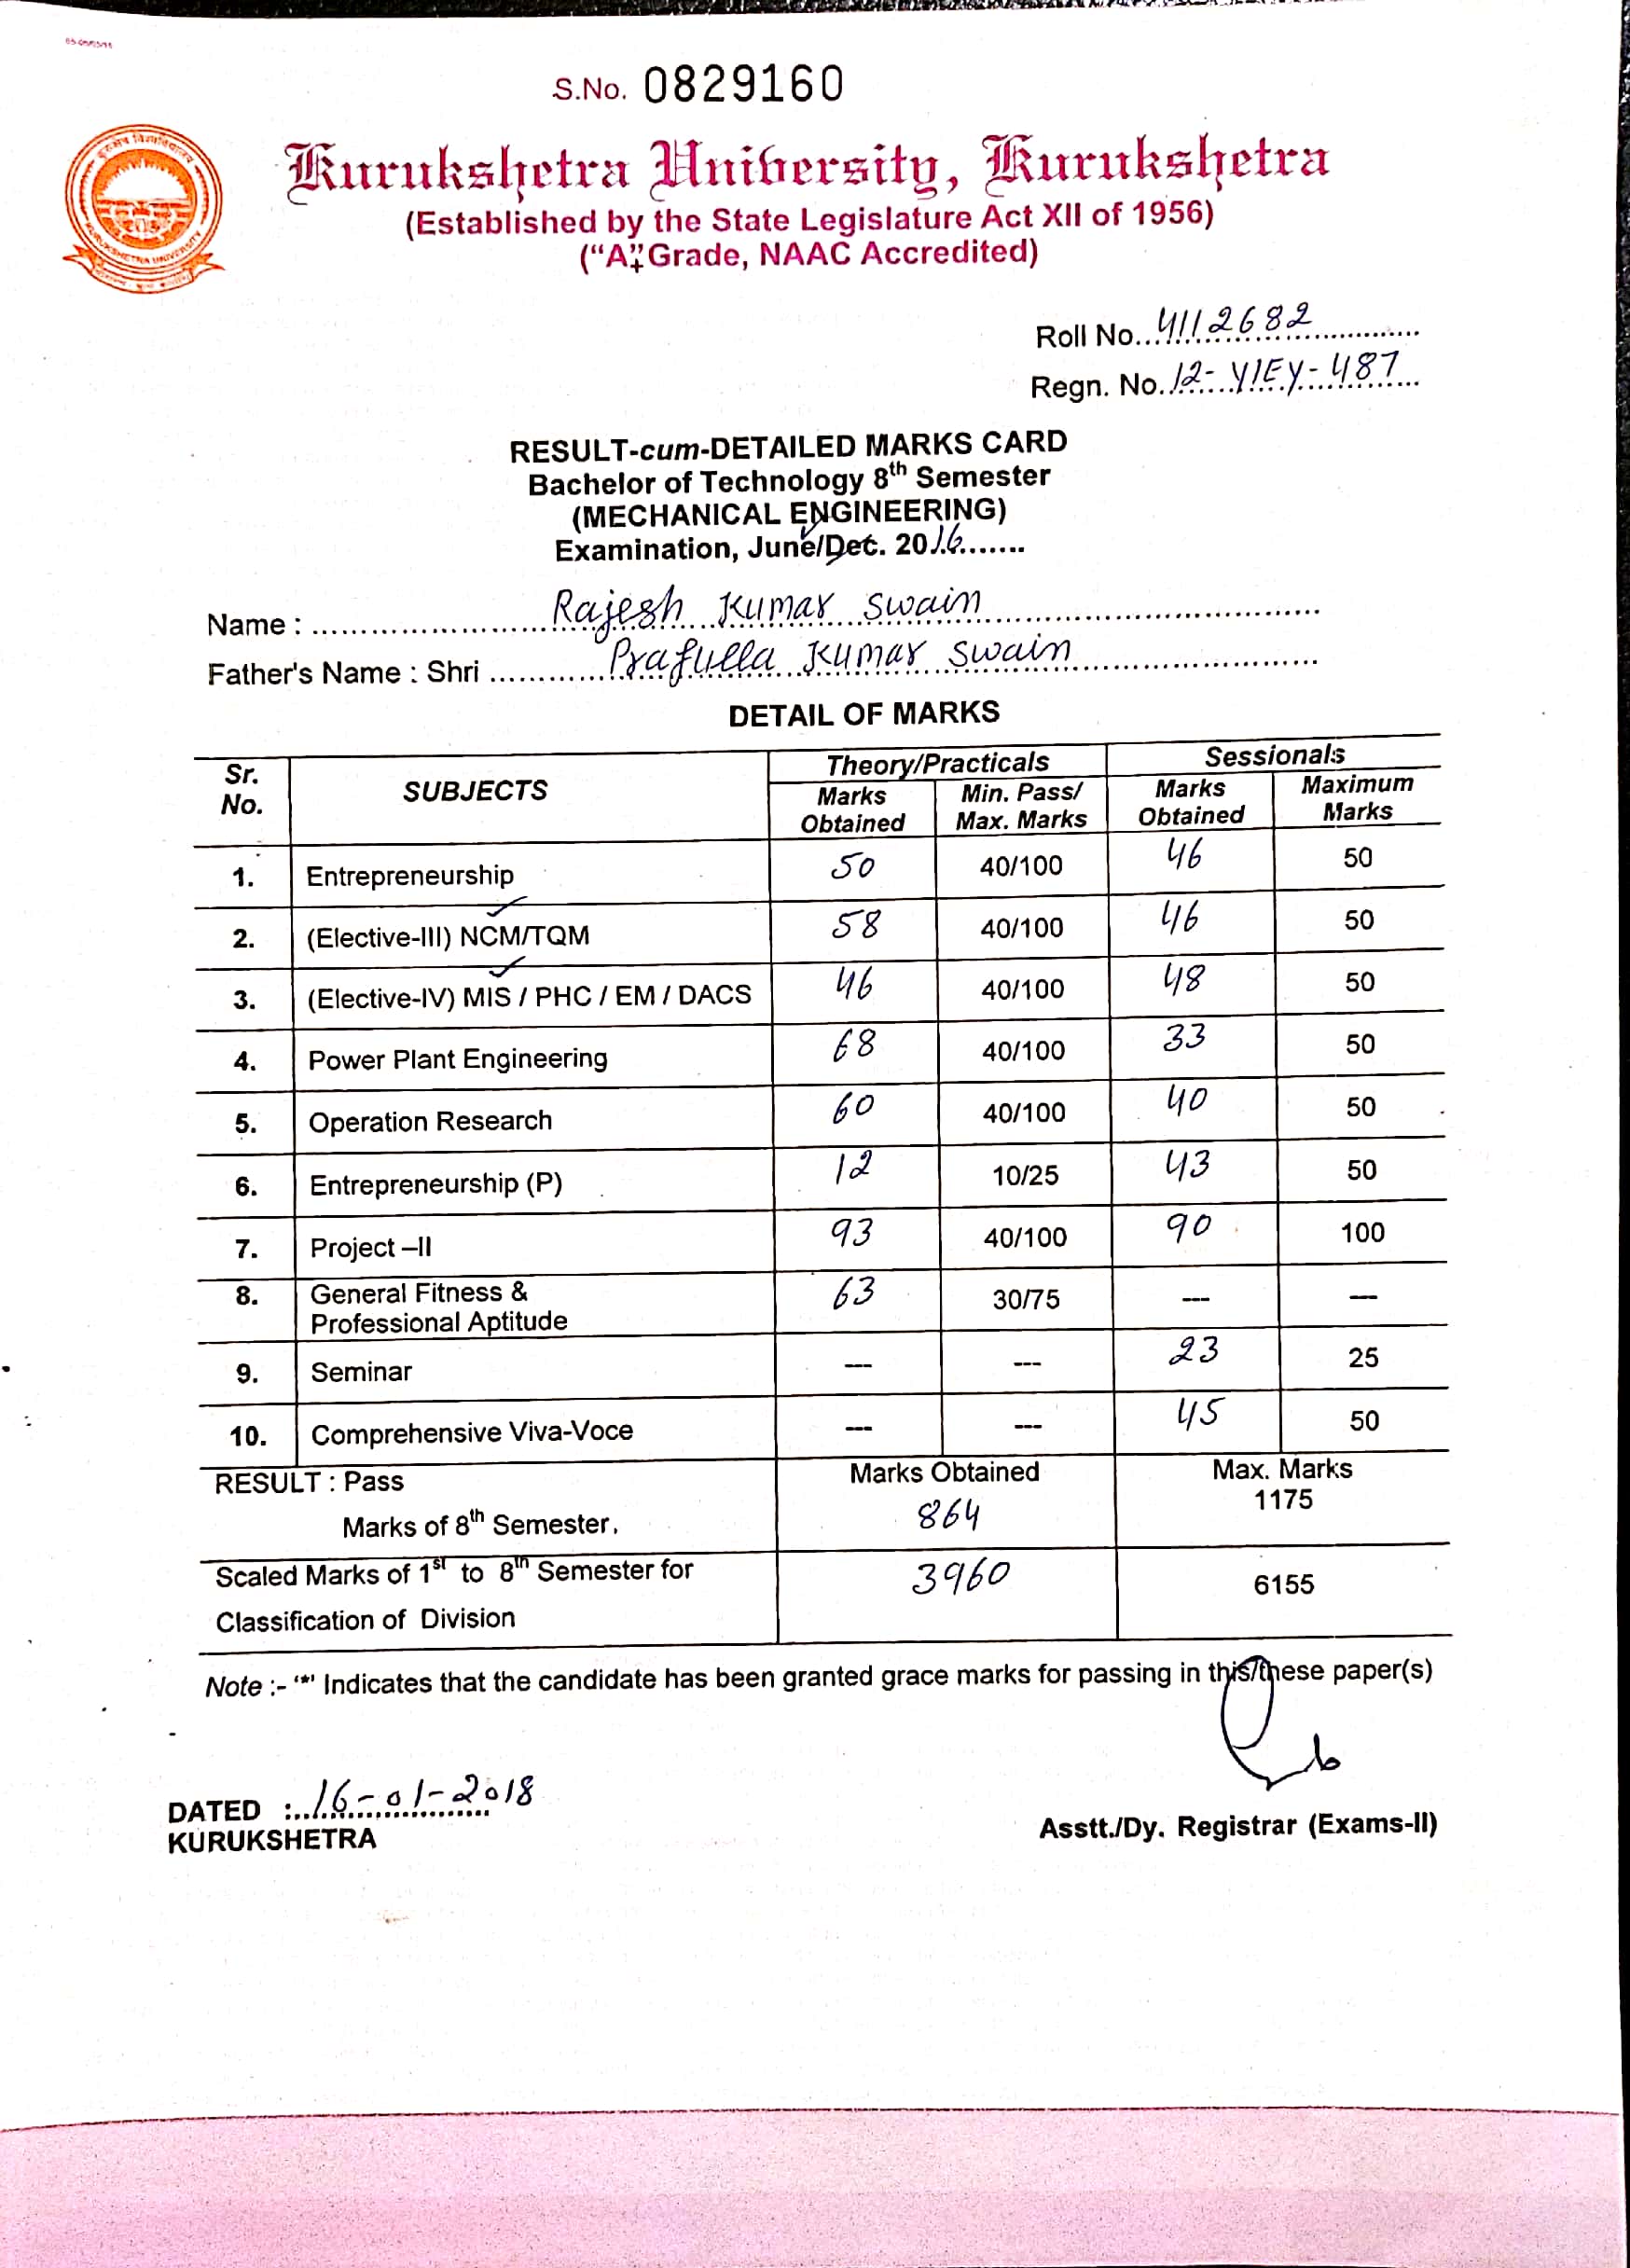 S.No. 0829160
Kurukshetra University, Kurukshetra
(Established by the State Legislature Act XII of 1956)
("A+" Grade, NAAC Accredited)
KURUKSHETRA UNIVERSITY
Roll No. 4112682
Regn. No. 12-YIEY-487
RESULT-cum-DETAILED MARKS CARD
Bachelor of Technology 8th Semester
(MECHANICAL ENGINEERING)
Examination, June/Dec. 2016
Name : Rajesh Kumar Swain
Father's Name : Shri Prafulla Kumar Swain
DETAIL OF MARKS
Sr. No. SUBJECTS Theory/Practicals Sessionals
Marks Obtained Min. Pass/ Max. Marks Marks Obtained Maximum Marks
1. Entrepreneurship 50 40/100 46 50
2. (Elective-III) NCM/TQM 58 40/100 46 50
3. (Elective-IV) MIS / PHC / EM / DACS 46 40/100 48 50
4. Power Plant Engineering 68 40/100 33 50
5. Operation Research 60 40/100 40 50
6. Entrepreneurship (P) 12 10/25 43 50
7. Project –II 93 40/100 90 100
8. General Fitness & Professional Aptitude 63 30/75 --- ---
9. Seminar --- --- 23 25
10. Comprehensive Viva-Voce --- --- 45 50
RESULT : Pass Marks Obtained Max. Marks
Marks of 8th Semester. 864 1175
Scaled Marks of 1st to 8th Semester for 3960 6155
Classification of Division
Note :- '*' Indicates that the candidate has been granted grace marks for passing in this/these paper(s)
DATED : 16-01-2018
KURUKSHETRA
Asstt./Dy. Registrar (Exams-II)